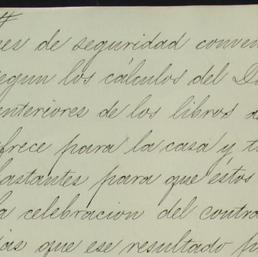 nes de seguridad conven
egun los cálculos del D
anteriores de los libros d
ofrece para la casa y t
bastantes para que éstos
la celebracion del contra
ias que ese resultado p